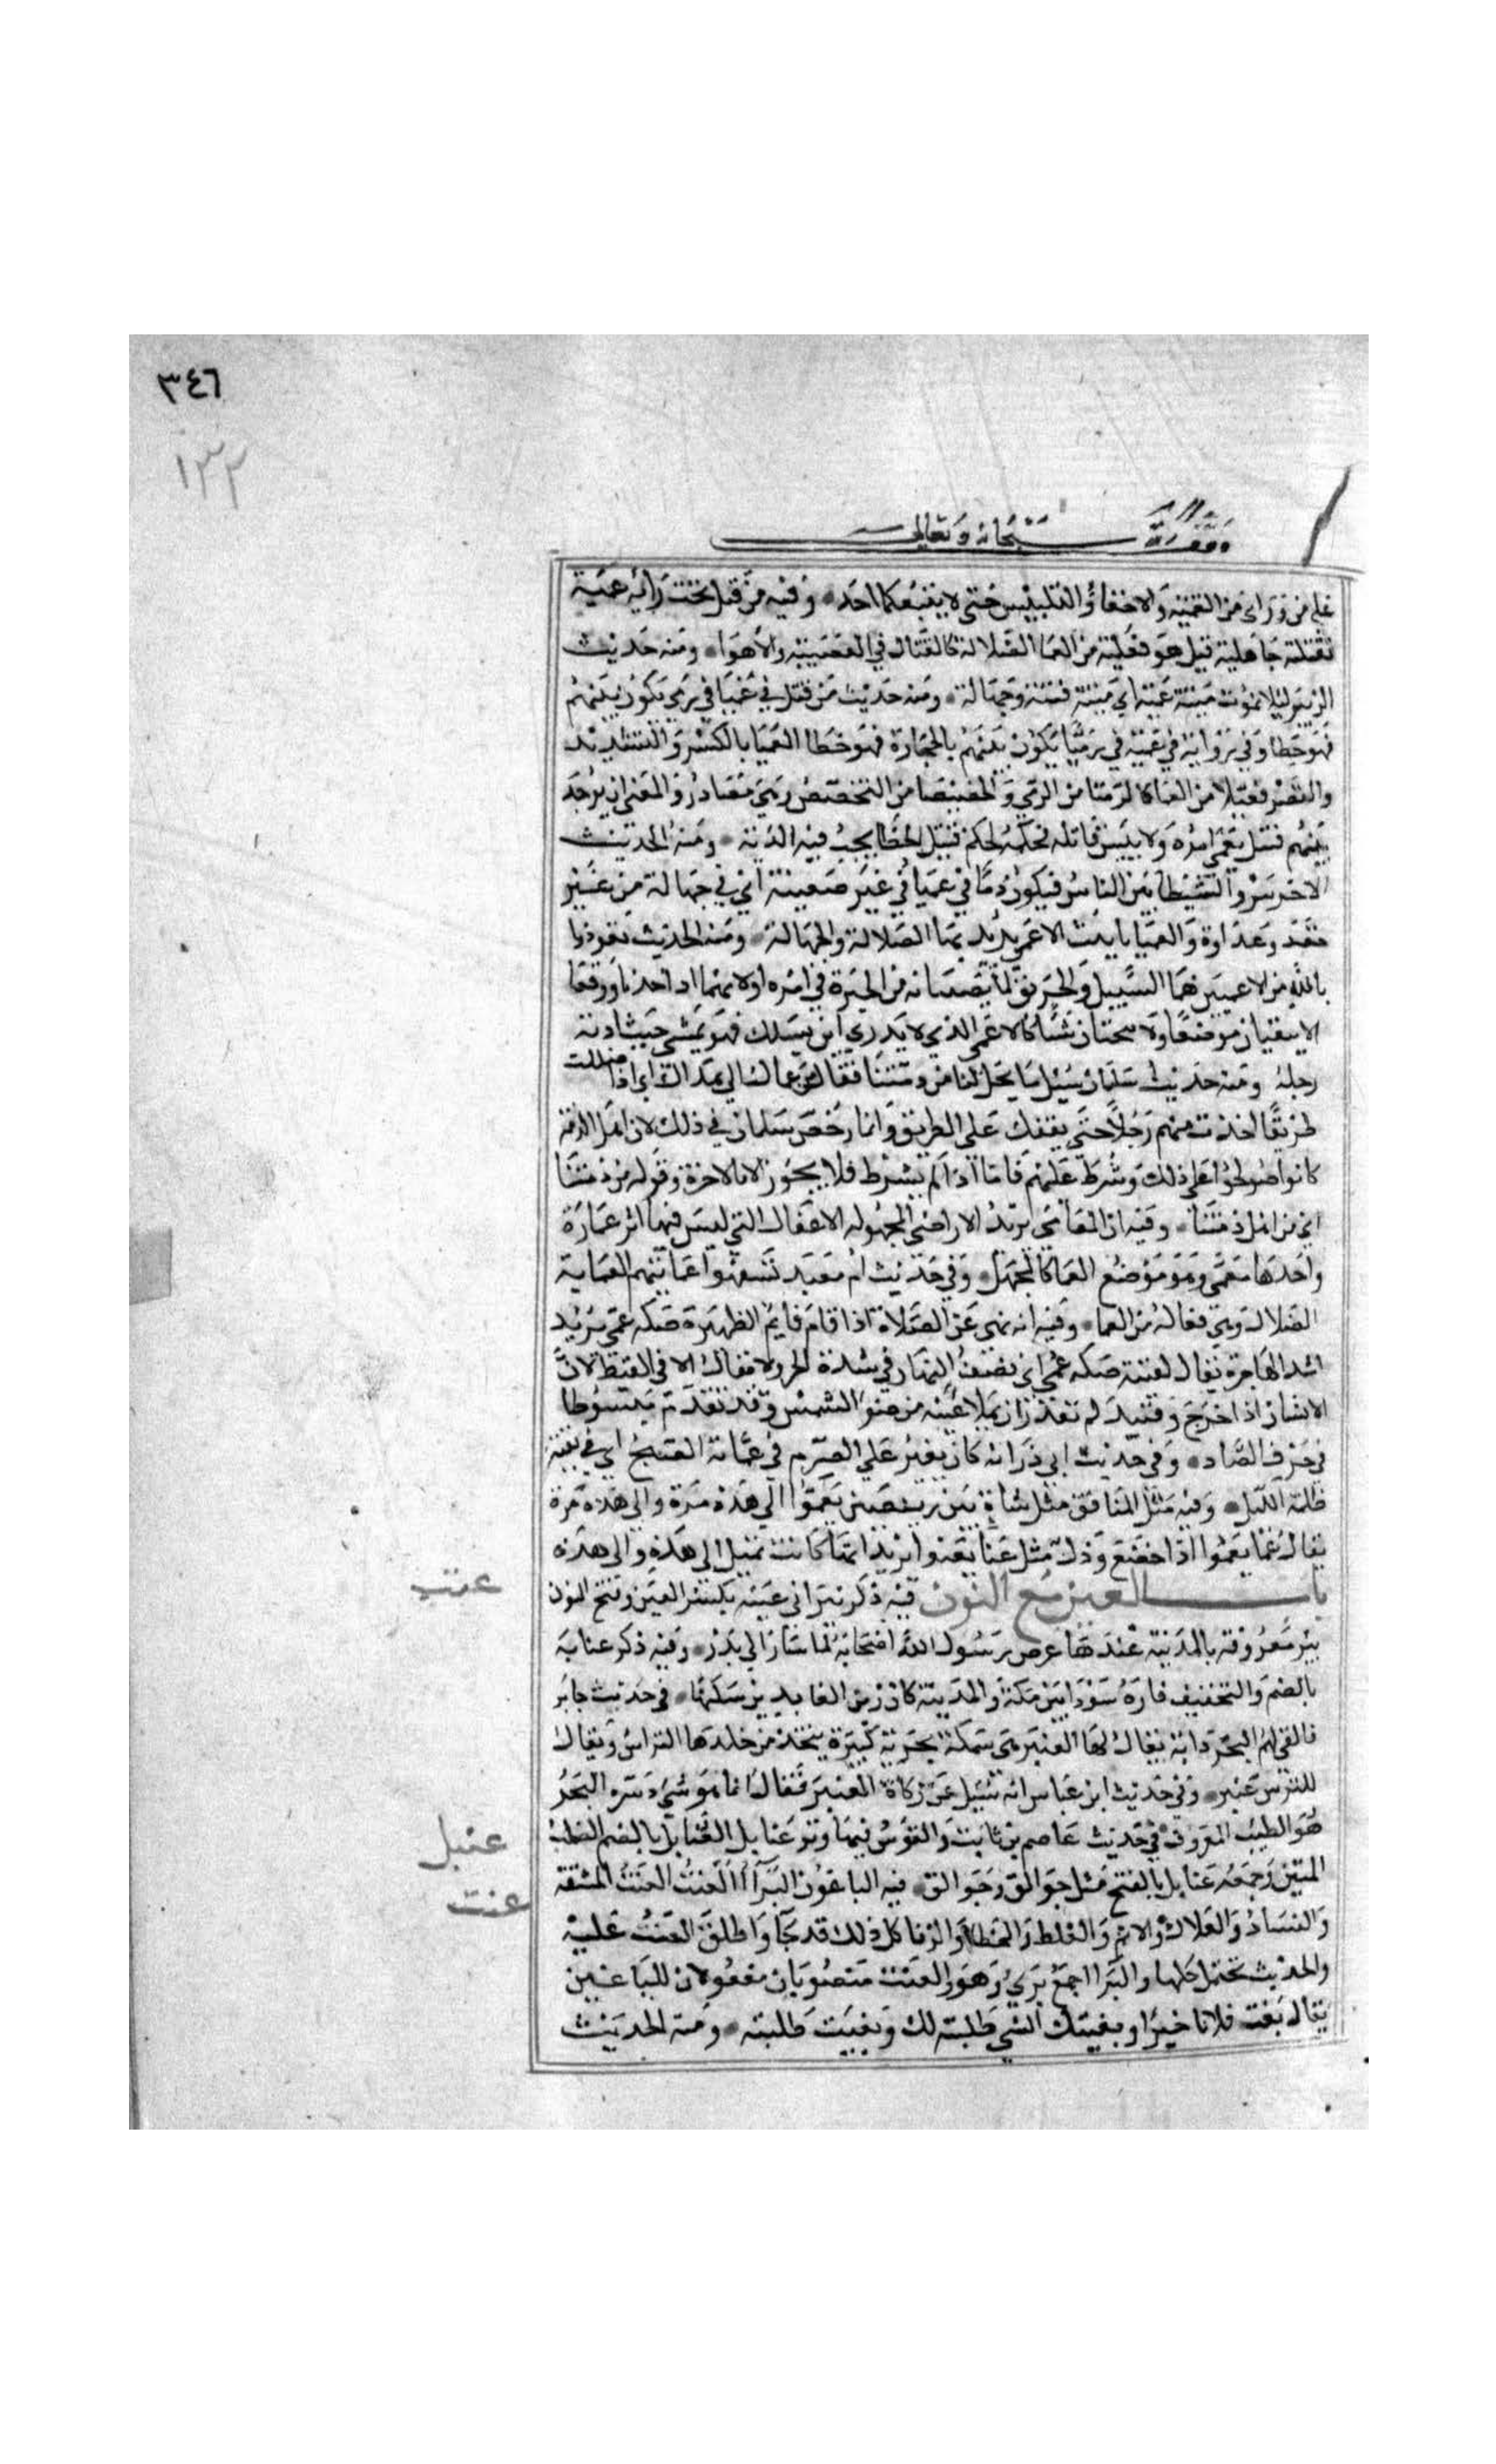 ٣٤٦
١٣٢
وقف لله سبحانه وتعالى
على من ورائى من التعميه والاخفاء والتلبيس حتى لا يتبعكما احد وفيه من قتل تحت رايه عميه
فقتلته جاهلية قيل هو فعيلة من العما الضلالة كالقتال في العصبية والاهواء ومنه حديث
الزبير ليلا نموت ميتة عمية اي ميتة فتنة وجهالة ومنه حديث من قتل في عميا في رمى يكون بينهم
فهو خطا وفي رواية في عمية في رميا يكون بينهم بالحجارة فهو خطا العميا بالكسر والتشديد
والقصر فعيلا من العما كالرميا من الرمي والخصيصا من التخصيص وهي مصادر والمعنى ان يوجد
بينهم قتيل يعمى امره ولا يبين قاتله فحكمه حكم قتيل الخطا يجب فيه الدية ومنه الحديث
الاخر ينزو الشيطا بين الناس فيكون دما في عميا في غير ضغينة اي في جهالة من غير
حقد وعداوة والعميا تانيث الاعمى يريد بها الضلالة والجهالة ومنه الحديث تعوذوا
بالله من الاعميين هما السيل والحريق لما يصيبا نه من الحيرة في امره اولانهما اذا حدثا ووقعا
لا يبقيان موضعا ولا يتجنبان شيئا كالاعمى الذي لا يدري اين يسلك فهو يمشي حيث ادته
رجله ومنه حديث سلمان سئل ما يحل لنا من ذمتنا فقال من عماك الى هداك اي اذا ضللت
طريقا اخذت منهم رجلا حتى يقفك على الطريق وانما رخص سلمان في ذلك لان اهل الذمة
كانوا صولحوا على ذلك وشرط عليهم فاما اذا لم يشرط فلا يجوز الا بالاجرة وقوله من ذمتنا
اي من اهل ذمتنا وفيه ان لنا المعامي يريد الاراضي المجهوله الاغفال التي ليس فيها اثر عمارة
واحدها معمى وهو موضع العما كالمجهل وفي حديث ام معبد تسفهوا عمايتهم العماية
الضلال وهي فعالة من العما وفيه انه نهى عن الصلاة اذا قام قايم الظهيرة صكه عمي يريد
اشد الهاجرة يقال لقيته صكه عمي اي نصف النهار في شدة الحر ولا يقال الا في القيظ لان
الانسان اذا خرج وقتيد لم يقدر ان يملا عينه من ضوء الشمس وقد تقدم مبسوطا
في حرف الصاد وفي حديث ابي ذر انه كان يغير على الصرم في عماية الصبح اي في بقية
ظلمة الليل وفيه مثل المنافق مثل شاة بين ربيضين تعموا الى هذه مرة والى هذه مرة
يقال عما يعموا اذا خضع وذل مثل عنا يعنو يريد انها كانت تميل الى هذه والى هذه
باب العين مع النون فيه ذكر بير ابي عنبه بكسر العين وفتح النون
بير معروفة بالمدينة عندها عرض رسول الله اصحابه لما سار الى بدر وفيه ذكر عنابه
بالضم والتخفيف قارة سودا بين مكة والمدينة كان زين العابدين يسكنها في حديث جابر
فالقى لهم البحر دابة يقال لها العنبر هي سمكة بحرية كبيرة يتخذ من جلدها التراس ويقال
للترس عنبر وفي حديث ابن عباس انه سئل عن زكاة العنبر فقال انما هو شيء دسره البحر
هو الطيب المعروف في حديث عاصم بن ثابت والقوس فيها وتر عنابل العنابل بالضم الصلب
المتين وجمعه عنابل بالفتح مثل جوالق وجوالق فيه الباغون البرآء العنت العنت المشقة
والفساد والهلاك والاثم والغلط والخطا والزنا كل ذلك قد جا واطلق العنت عليه
والحديث يحتمل كلها والبرا جمع بري وهو والعنت منصوبان مفعولان للباغين
يقال بغيت فلانا خيرا وبغيتك الشي طلبته لك وبغيت طلبته ومنه الحديث
عنب
عنبل
عنت